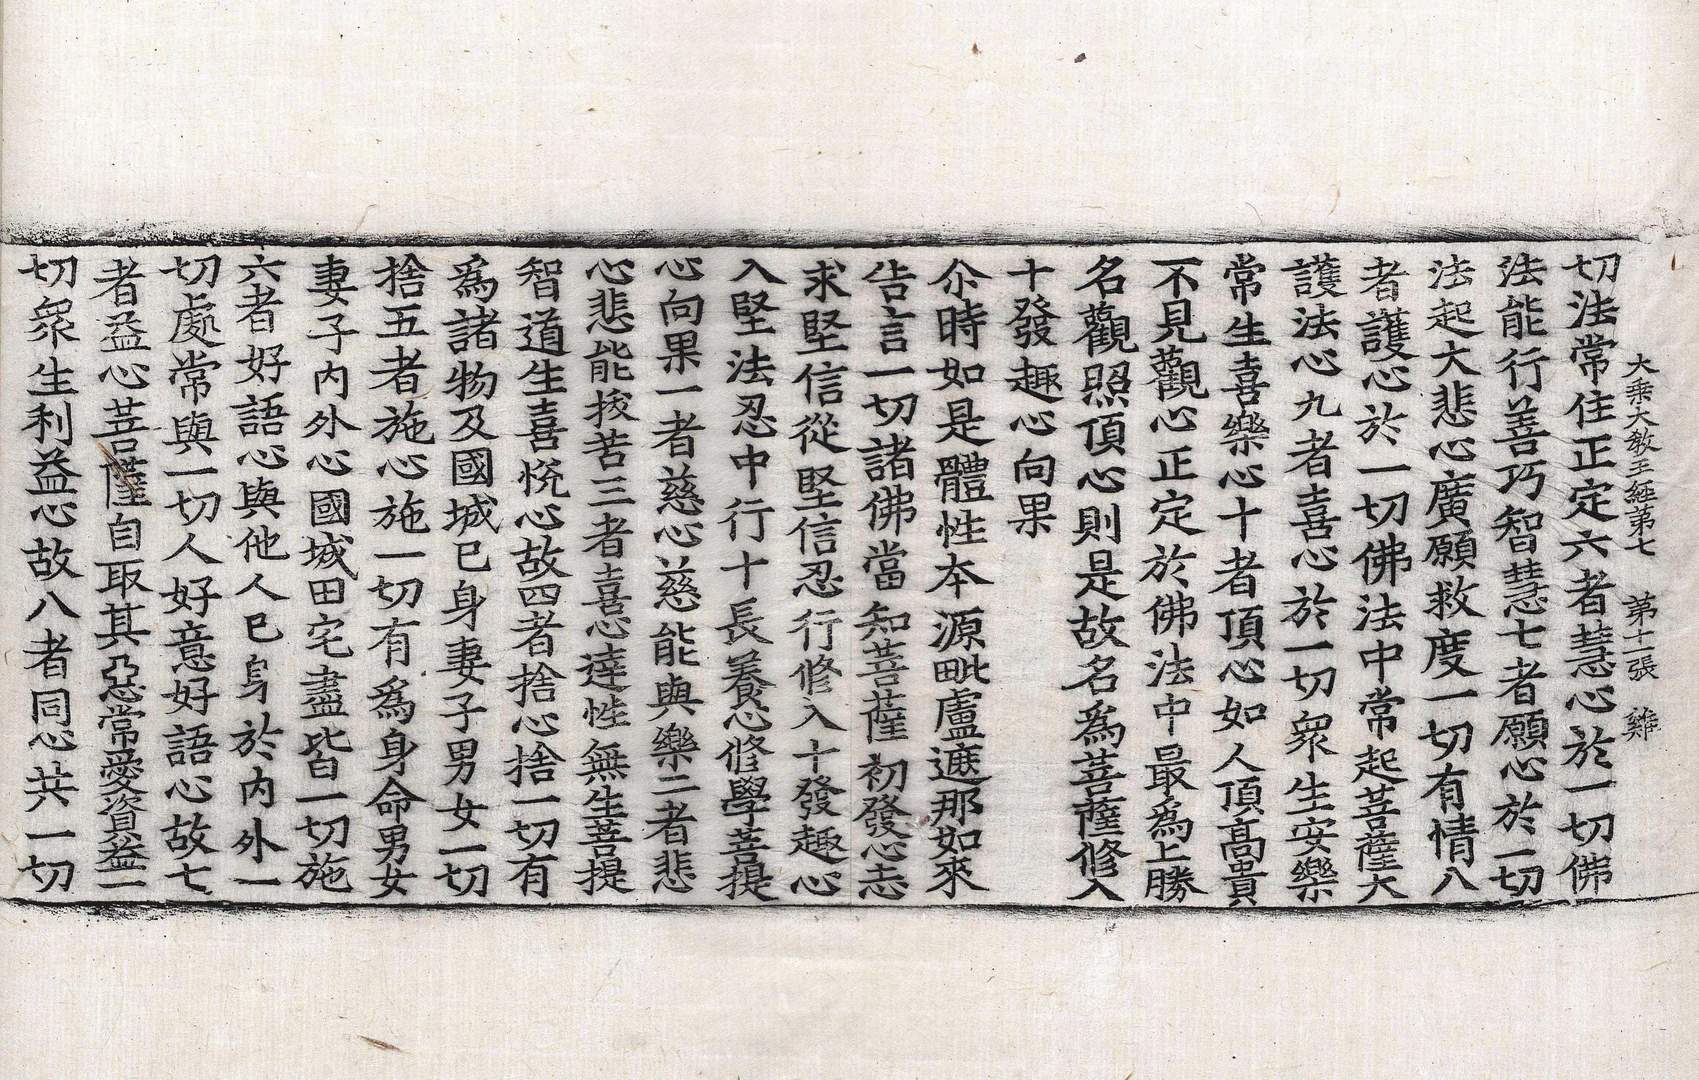 大乘大教王經第七　第十一張　雞
切法常住正定六者慧心於一切佛
法能行善巧智慧七者願心於一切
法起大悲心廣願救度一切有情八
者護心於一切佛法中常起菩薩大
護法心九者喜心於一切衆生安樂
常生喜樂心十者頂心如人頂髙貴
不見觀心正定於佛法中最爲上勝
名觀照頂心則是故名爲菩薩修入
十發趣心向果
尒時如是體性本源毗盧遮那如來
告言一切諸佛當知菩薩初發心志
求堅信從堅信忍行修入十發趣心
入堅法忍中行十長養心修學菩提
心向果一者慈心慈能與樂二者悲
心悲能拔苦三者喜心達性無生菩提
智道生喜悅心故四者捨心捨一切有
爲諸物及國城已身妻子男女一切
捨五者施心施一切有爲身命男女
妻子內外心國城田宅盡皆一切施
六者好語心與他人已身於內外一
切處常與一切人好意好語心故七
者益心菩薩自取其惡常愛資益一
切衆生利益心故八者同心共一切